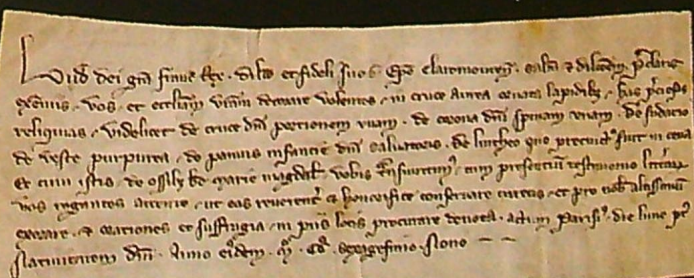 Lud' dei gra franc' Rex. dilco et fideli suo Epo claromonten. salt & dilcem. 
exeniis, vos et eccliam vram decorare volentes, in cruce aurea ornata lapidib; has
reliquias, videlicet de cruce dni portionem unam. de corona dni spinam unam. de sudario
de veste purpurea, de pannis infancie dni salvatoris. de lintheo quo precinct' fuit in cena
Et cum istis, de ossib; be marie magdal. vobis cum presentium testimonio litterar'
vos rogantes attente, ut eas reverent' et honorifice conservare curetis, et pro nob altissimum
exorare, & orationes et suffragia, in piis locis procurare devota. actum Parisi'. die lune pt
Nativitatem dni. Anno eiusdem. M. CC. sexagesimo Nono